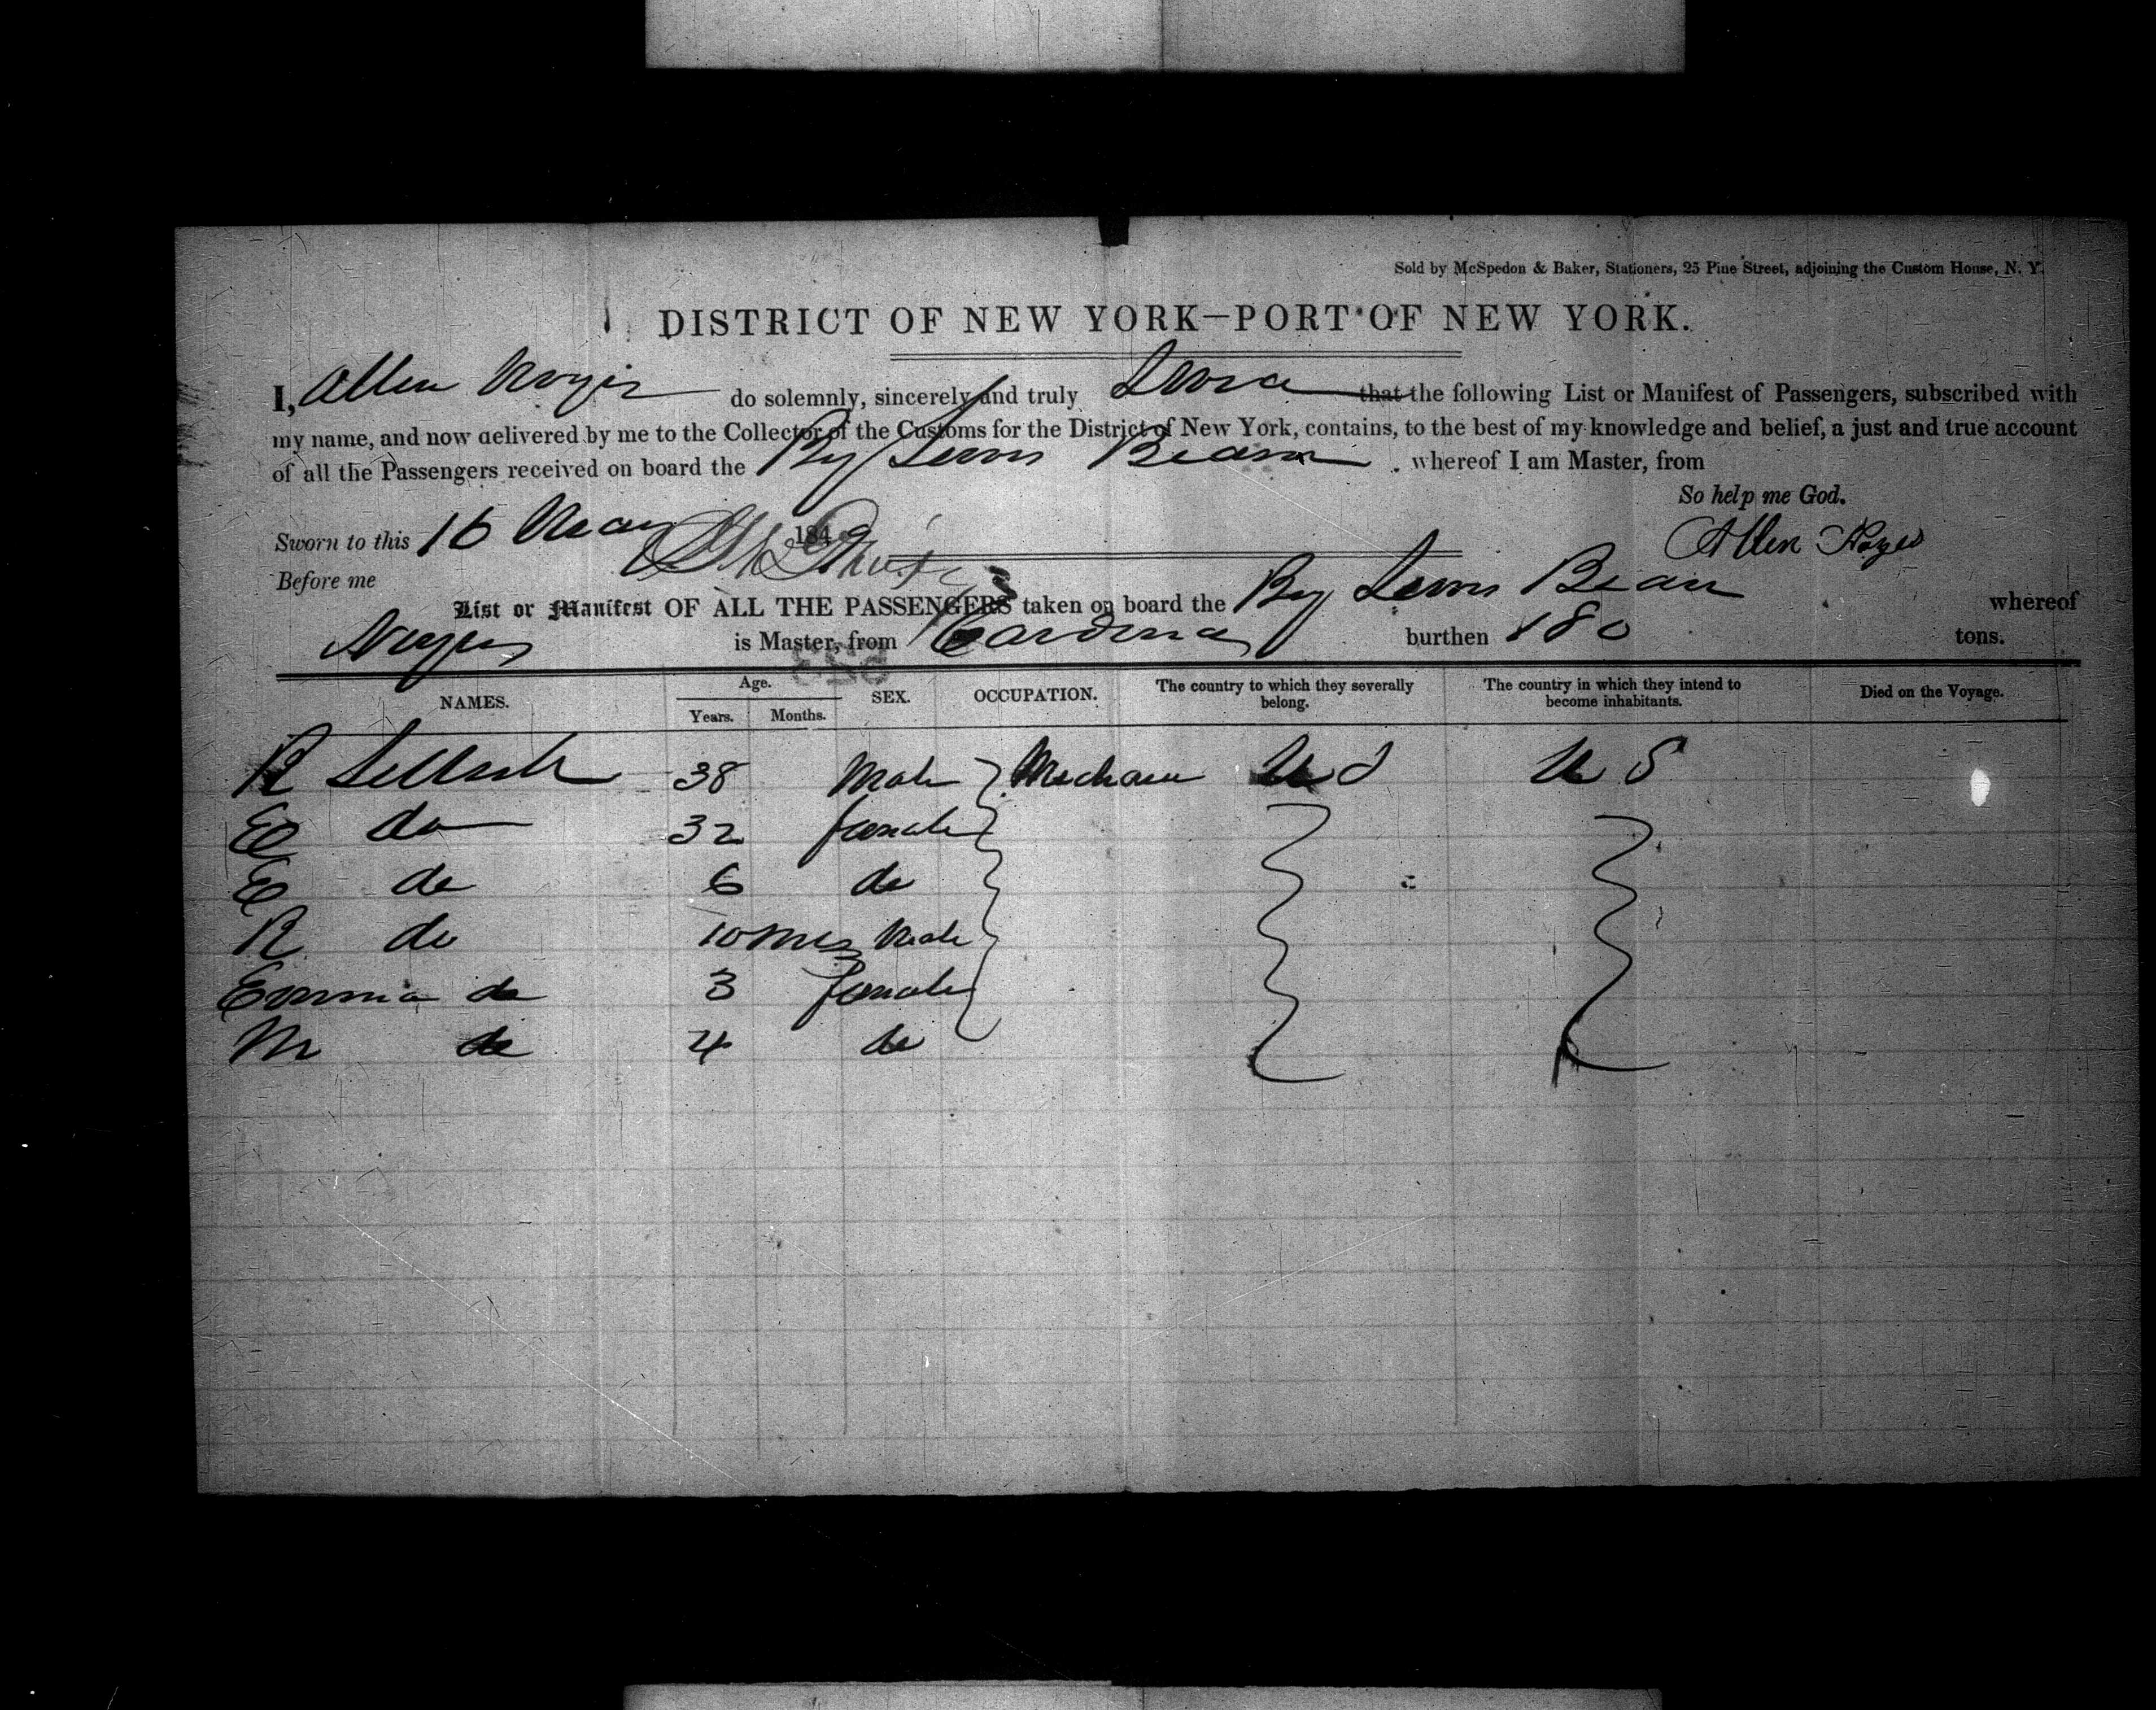 Sold by McSpedon & Baker, Stationers, 25 Pine Street, adjoining the Custom House, N. Y.
DISTRICT OF NEW YORK—PORT OF NEW YORK.
I, Allen Noyes do solemnly, sincerely and truly swear that the following List or Manifest of Passengers, subscribed with
my name, and now delivered by me to the Collector of the Customs for the District of New York, contains, to the best of my knowledge and belief, a just and true account
of all the Passengers received on board the Bg Bean . whereof I am Master, from
So help me God.
Sworn to this 16 May 184 Allen Noyes
Before me
List or Manifest OF ALL THE PASSENGERS taken on board the Bg Bean whereof
Noyes is Master, from Cardenas burthen 180 tons.
NAMES. Age. Years. Months. SEX. OCCUPATION. The country to which they severally belong. The country in which they intend to become inhabitants. Died on the Voyage.
R 38 Male U S U S
E do 32 female
E do 6 do
R do 10 mos Male
Emma do 3 female
M do 4 do